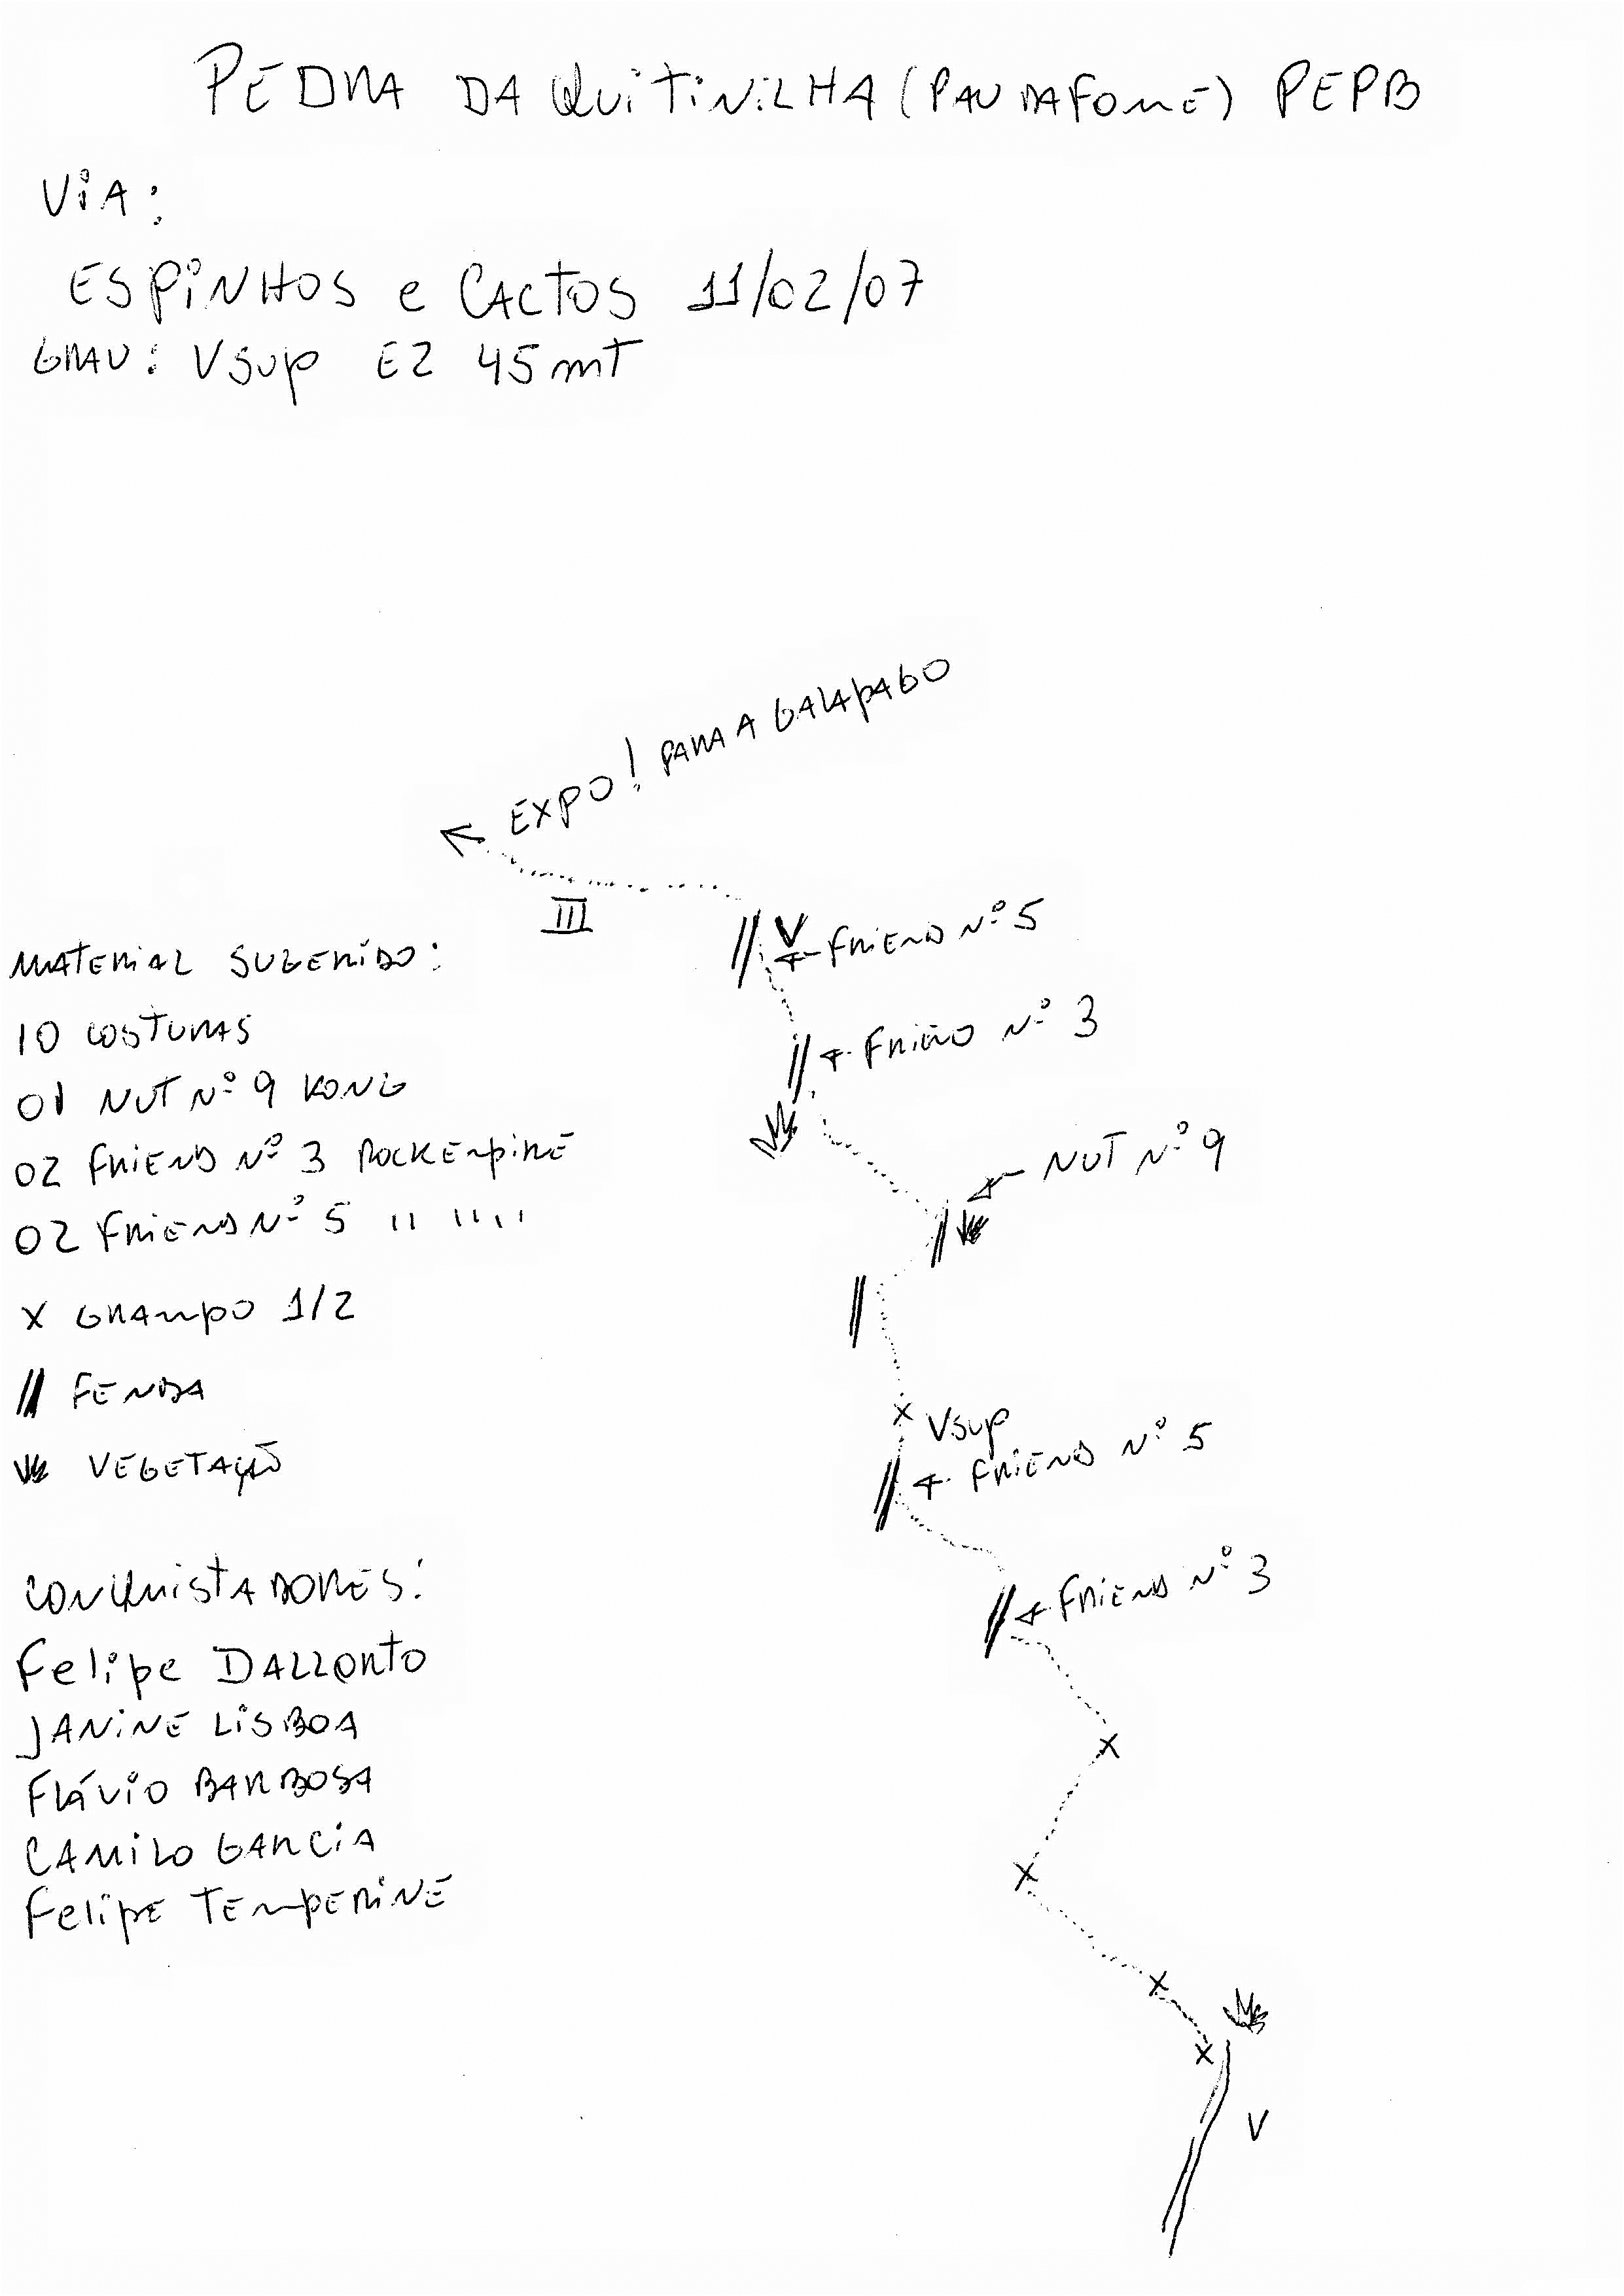 PEDRA DA QUITINILHA (PAU DA FOME) PEPB
VIA:
ESPINHOS e CACTOS 11/02/07
GRAU: Vsup E2 45mt
EXPO! PARA A GALAPAGO
III
V
FRIEND Nº 5
MATERIAL SUGERIDO:
FRIEND Nº 3
10 COSTURAS
01 NUT Nº 9 KONG
NUT Nº 9
02 FRIEND Nº 3 ROCKEMPIRE
02 FRIEND Nº 5 " " "
X GRAMPO 1/2
FENDA
Vsup
FRIEND Nº 5
VEGETAÇÃO
CONQUISTADORES:
FRIEND Nº 3
Felipe DALLORTO
JANINE LISBOA
FLÁVIO BARBOSA
CAMILO GARCIA
Felipe TEMPERINE
V